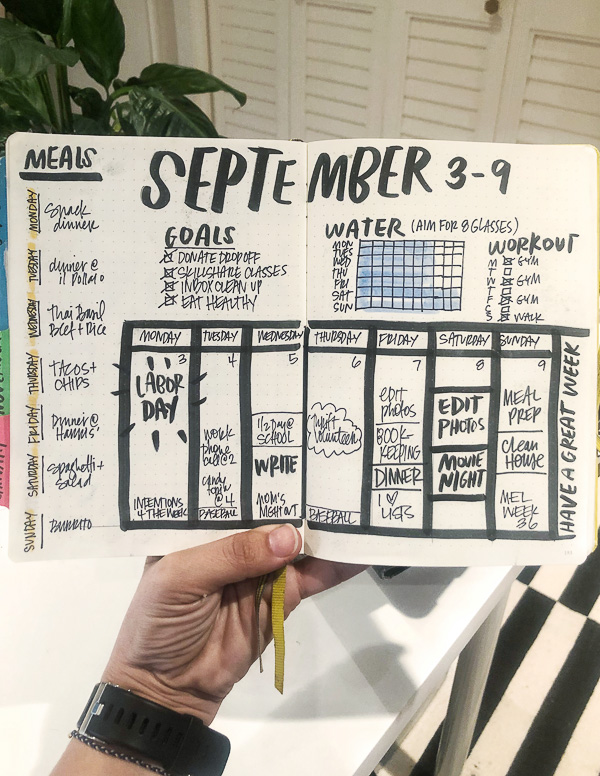 MEALS
SEPTEMBER 3-9
MONDAY
Snack
dinner
TUESDAY
dinner @
il Porano
WEDNESDAY
Thai Basil
Beef + Rice
THURSDAY
TACOS +
CHIPS
FRIDAY
Dinner @
SATURDAY
Spaghetti +
Salad
SUNDAY
BURRITO
GOALS
DONATE DROP OFF
SKILLSHARE CLASSES
INBOX CLEAN UP
EAT HEALTHY
WATER (AIM FOR 8 GLASSES)
MON
TUES
WED
THU
FRI
SAT
SUN
WORKOUT
M GYM
T
W GYM
T
F GYM
S
S WALK
MONDAY
3
LABOR
DAY
INTENTIONS
4 THE WEEK
TUESDAY
4
WORK
PHONE
CALL @ 2
@ 4
BASEBALL
WEDNESDAY
5
1/2 DAY @
SCHOOL
WRITE
MOM'S
NIGHT OUT
THURSDAY
6
Thrift
Volunteer
BASEBALL
FRIDAY
7
edit
photos
BOOK-
KEEPING
DINNER
I ♡
LISTS
SATURDAY
8
EDIT
PHOTOS
MOVIE
NIGHT
SUNDAY
9
MEAL
PREP
Clean
House
MEL
WEEK
36
HAVE A GREAT WEEK